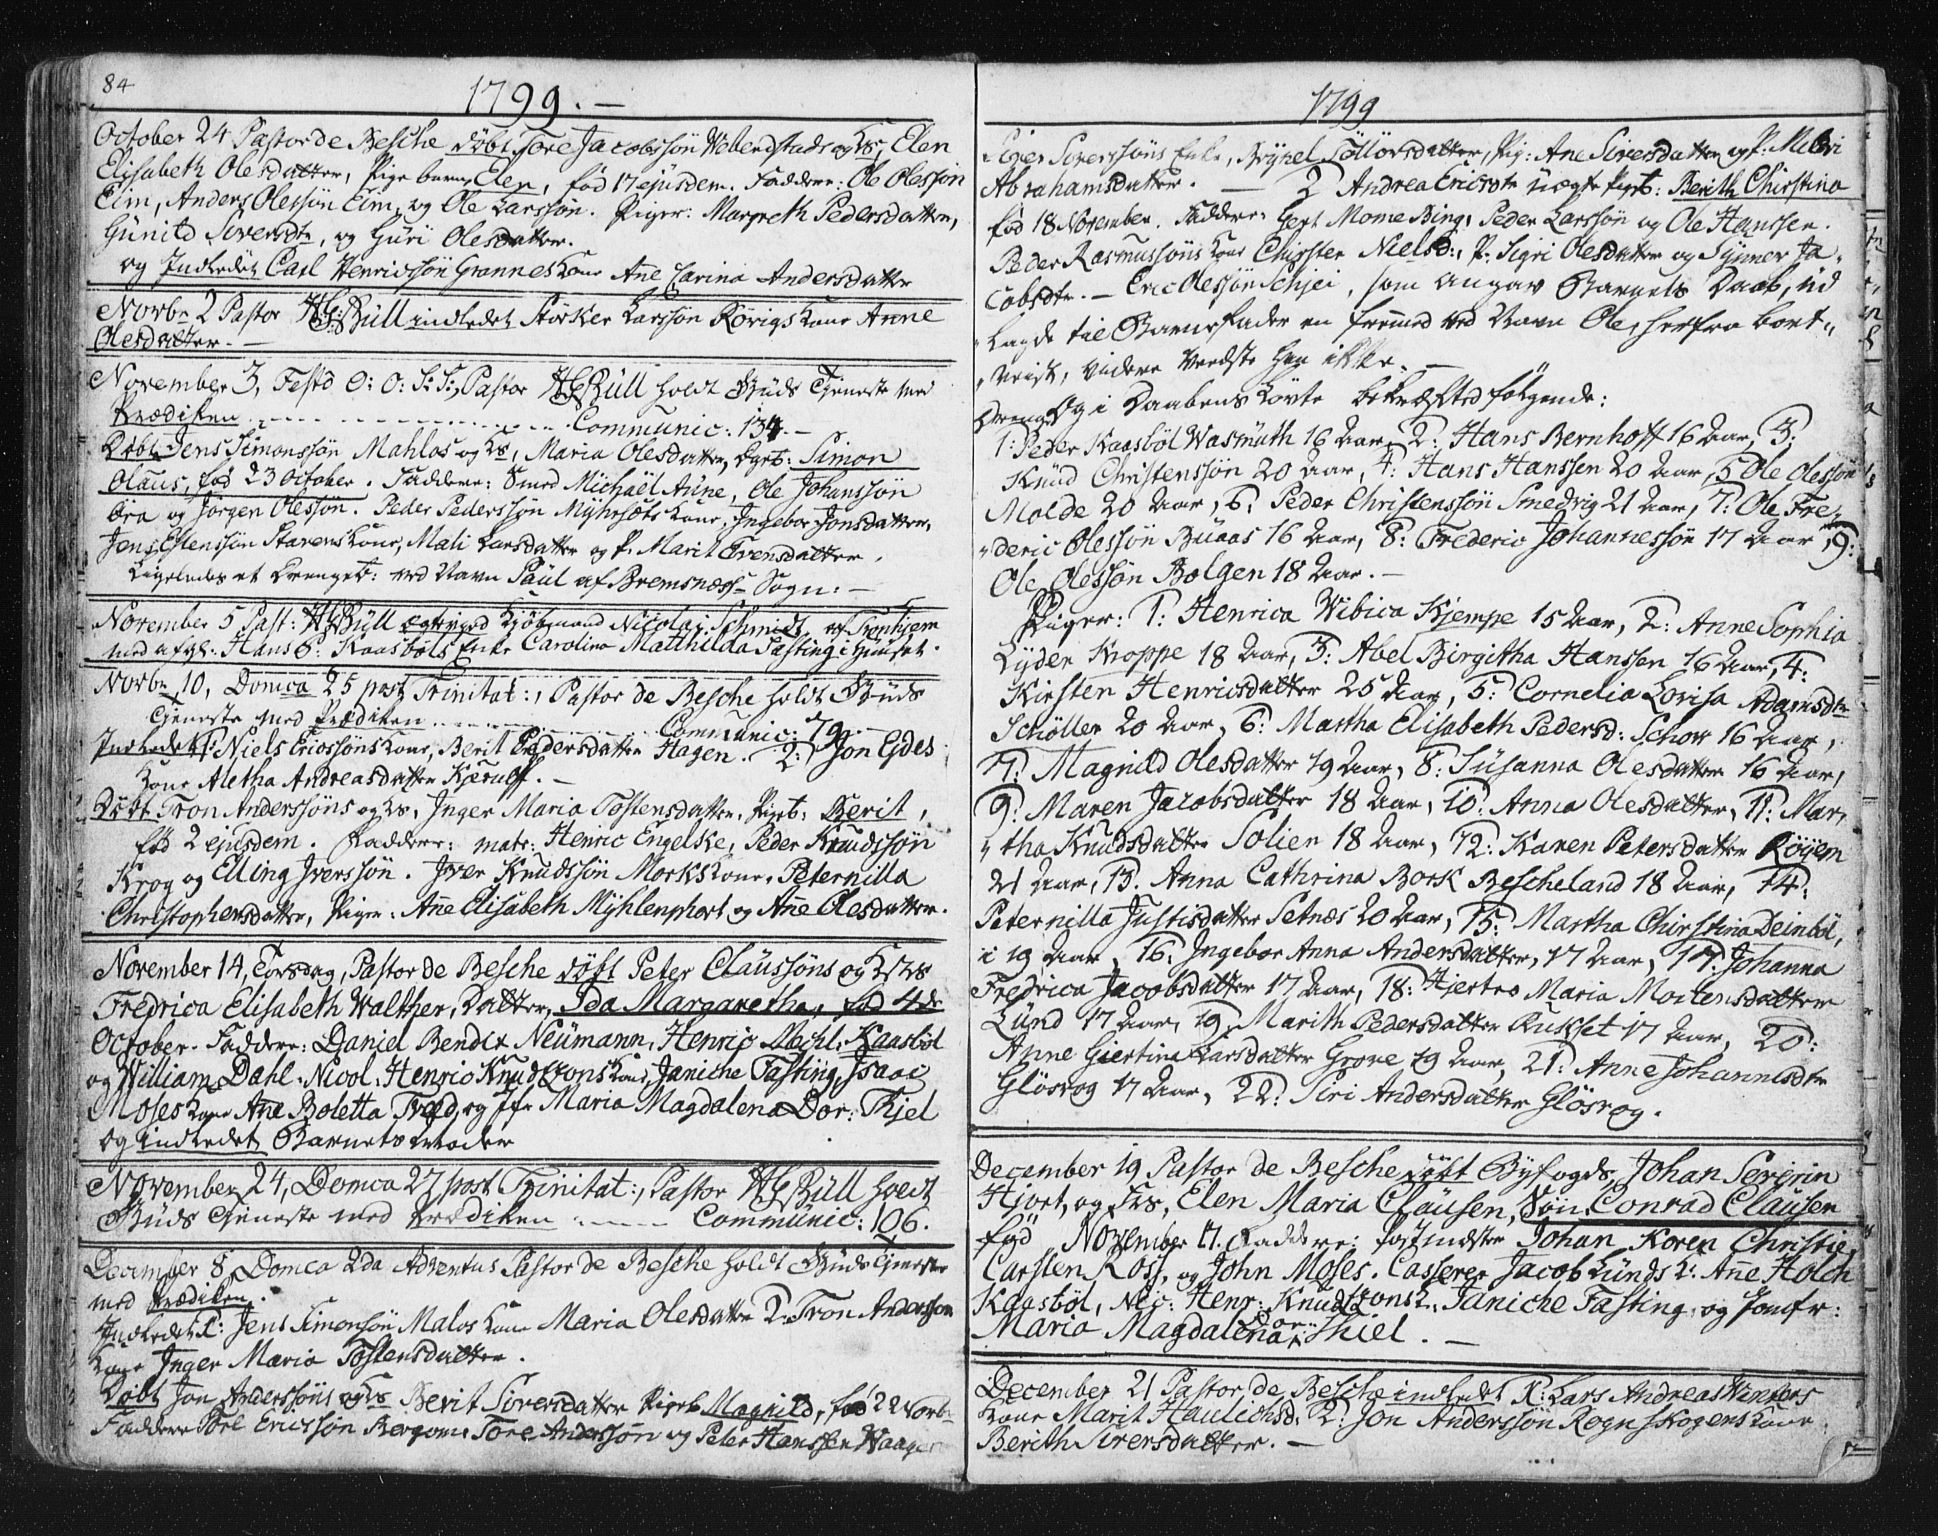 84
1799. —
October 24 Pastor de Besche döbt Tore Jacobssön Weberstads og Hs; Elen
Elisabeth Olesdatter, Pige barn Elen, fød 17 ejusdem. Faddere: Ole Olessön
Eim, Anders Olessön Eim, og Ole Larssön. Piger: Margreth Pedersdatter,
Gunild Siversdtr, og Guri Olesdatter.
og Indledet Carl Henricssön Grannes Kone Ane Carina Andersdatter
Novbr 2 Pastor HG Bull indledet Störker Larssön Rörigs Kone Anne
Olesdatter. —
November 3, Festo O: O: S: S:, Pastor HG Bull holdt Guds Tjeneste med
Prædiken . . . . . . Communic: 134. —
Döbt Jens Simonssön Mahlos og Hs, Maria Olesdatter, Dgeb: Simon
Olaus, fød 23 October. Faddere: Smed Michaël Aune, Ole Johanssön
Öra og Jörgen Olessön. Peder Pederssön Myhrsets Kone, Ingebor Jonsdatter,
Jens Estenssön Stavens Kone, Mali Larsdatter og P. Marit Svensdatter.
Ligeledes et Drengeb: ved Navn Paul af Bremsnæss Sogn. —
November 5 Past: HG Bull Egteviede Kjöbmand Nicolaj Schmidt af Tronhjem
med afgl. Hans G: Kaasböls Enke Carolina Matthilda Fasting i Huuset.
Novbr 10, Domca 25 post Trinitat:, Pastor de Besche holdt Guds
Tjeneste med Prædiken . . . . . Communic: 79. —
Indledet 1: Niels Ericssöns Kone, Berit Pedersdatter Hagen. 2: Jon Ejdes
Kone Aletha Andreasdatter Kjerulf. —
Döbt Tron Anderssöns og Hs, Inger Maria Tostensdatter, Pigeb: Berit,
fød 2 ejusdem. Faddere: matr: Henric Engelske, Peder Knudssön
Krog og Elling Iverssön. Iver Knudssön Morks Kone, Peternilla
Christophersdatter, Piger: Ane Elisabeth Myhlenphort og Ane Olesdatter.
November 14, Torsdag, Pastor de Besche döbt Peter Claussöns og Hs
Fredrica Elisabeth Walther, Datter, Ida Margaretha, fød 4de
October. Faddere: Daniel Bendix Neumann, Henric Mechl: Kaasböl
og William Dahl. Nicol: Henric Knudtzons Kone, Janiche Fasting, Isaac
Moses Kone Ane Boletta, og Jfr Maria Magdalena Dor: Thjel
og indledet Barnets Moder
November 24, Domca 27 post Trinitat:, Pastor HG Bull holdt
Guds Tjeneste med Prædiken . . . . Communic: 106.
December 8 Domca 2da Adventus Pastor de Besche holdt Guds Tjeneste
med Prædiken.
Indledet 1: Jens Simonssön Malos Kone Maria Olesdatter 2: Tron Anderssön
Kone Inger Maria Tostensdatter.
Döbt Jon Anderssöns og Hs Berit Siversdatter Pigeb Magnild, fød 22 Novbr
Faddere Ericssön Bergom, Tore Anderssön og Peter Hanssen Waagen
1799
Siverssöns Enke, Brynel Töllovsdatter, Pig: Ane Siversdatter og P: Meleri
Abrahamsdatter. — 2 Andrea Ericsdtr uægte Pigeb: Berith Chirstina
fød 18 November. Faddere: Gert Mome Bing, Peder Larssön og Ole Hanssen.
Peder Rasmussöns Kone Chirsten Nielsd:, P: Sigri Olesdatter og Synner Ja-
cobsdtr. — Eric Olessön Schjei, som angav Barnets Daab, ud
lagde til Barnefader en fremmed ved Navn Ole, herfra bort-
reist, videre veedste han ikke. —
Og i Daabens Løvte bekræftes følgende:
Drenge
1: Peder Kaasböl Wasmuth 16 Aar, 2: Hans Bernhoff 16 Aar, 3:
Knud Christenssön 20 Aar, 4: Hans Hanssen 20 Aar, 5 Ole Olessön
Molde 20 Aar, 6: Peder Christenssön Smedvig 21 Aar, 7: Ole Fre-
deric Olessön Buaas 16 Aar, 8: Frederic Johannessön 17 Aar, 9:
Ole Olessön Bolgen 18 Aar. —
Piger: 1: Henrica Vibica Kjempe 15 Aar, 2: Anne Sophia
Lyder Knoppe 18 Aar, 3: Abel Birgitha Hanssen 16 Aar, 4:
Kirsten Henricsdatter 25 Aar, 5: Cornelia Lovisa Adamsdtr
Schöller 20 Aar, 6: Martha Elisabeth Pedersd: Schow 16 Aar,
7: Magnild Olesdatter 19 Aar, 8: Susanna Olesdatter 16 Aar,
9: Maren Jacobsdatter 18 Aar, 10: Anna Olesdatter, 11: Mar-
tha Knudsdatter Solien 18 Aar, 12: Karen Petersdatter Röyem
21 Aar, 13. Anna Cathrina Bork Bescheland 18 Aar, 14:
Peternilla Justisdatter Setnæs 20 Aar, 15: Martha Chirstina Deinböl,
i 19 Aar, 16: Ingebor Anna Andersdatter, 17 Aar, 17: Johanna
Fredrica Jacobsdatter 17 Aar, 18: Hjertro Maria Mortensdatter
Lund 17 Aar, 19: Marith Pedersdatter Rukset 17 Aar, 20:
Anne Giertina Larsdatter Grove 19 Aar, 21: Anne Johannisdtr
Glösvog 17 Aar, 22: Siri Andersdatter Glösvog.
December 19 Pastor de Besche döbt Byfogds, Johan Severin
Hjort, og Hs, Elen Maria Clausen, Sön, Conrad Clausen
fød November 17. Faddere: Postmester Johan Koren Christie,
Carsten Ross, og John Moses. Casserer Jacob Lunds K: Ane Holch
Kaasböl, Nic: Henr: Knudtzons K., Janiche Fasting og Jomfr:
Maria Magdalena Dor: Thiel. —
December 21 Pastor de Besche indledet 1: Lars Andreas Winters
Kone Marit Haulichsd: 2: Jon Anderssön Rognskogens Kone
Berith Siversdatter. —